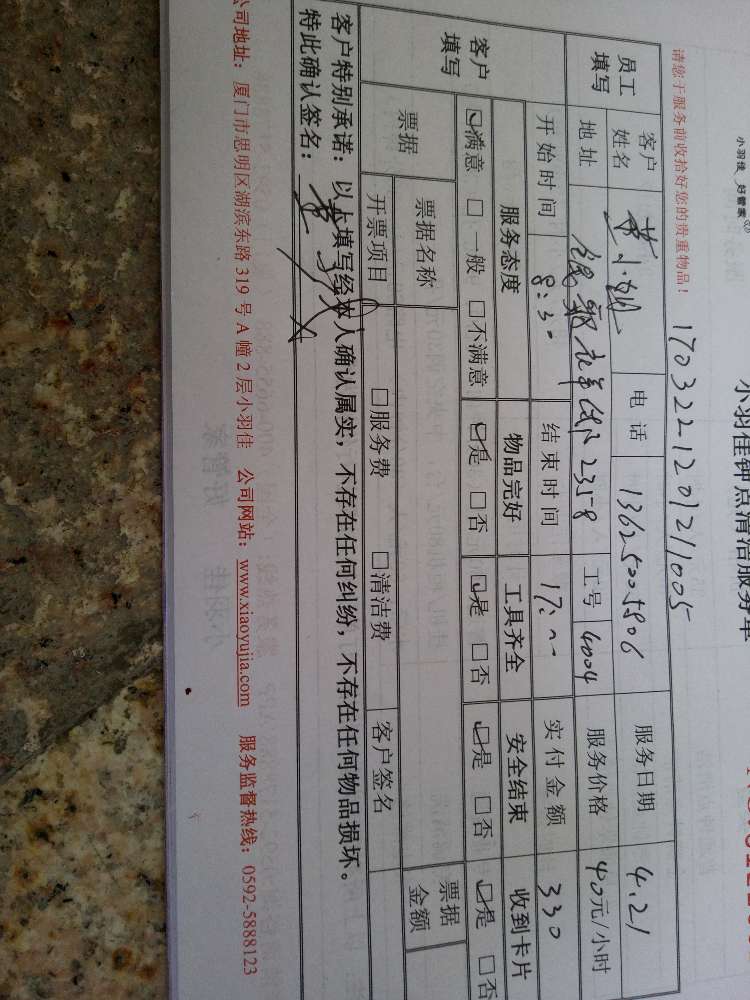 小羽佳 好管家
小羽佳钟点清洁服务单
170322-120121005
请您于服务前收拾好您的贵重物品！
员工填写 客户姓名 小 电话 13625005806 服务日期 4.21
地址 2358 工号 4004 服务价格 40元/小时
开始时间 8:30 结束时间 17: 实付金额 330
客户填写 服务态度 物品完好 工具齐全 安全结束 收到卡片
☑满意 □一般 □不满意 ☑是 □否 ☑是 □否 ☑是 □否 ☑是 □否
票据 票据名称 票据金额
开票项目 □服务费 □清洁费 客户签名
客户特别承诺：以上填写经本人确认属实，不存在任何纠纷，不存在任何物品损坏。
特此确认签名：
公司地址：厦门市思明区湖滨东路 319 号 A 幢 2 层小羽佳 公司网站：www.xiaoyujia.com 服务监督热线：0592-5888123